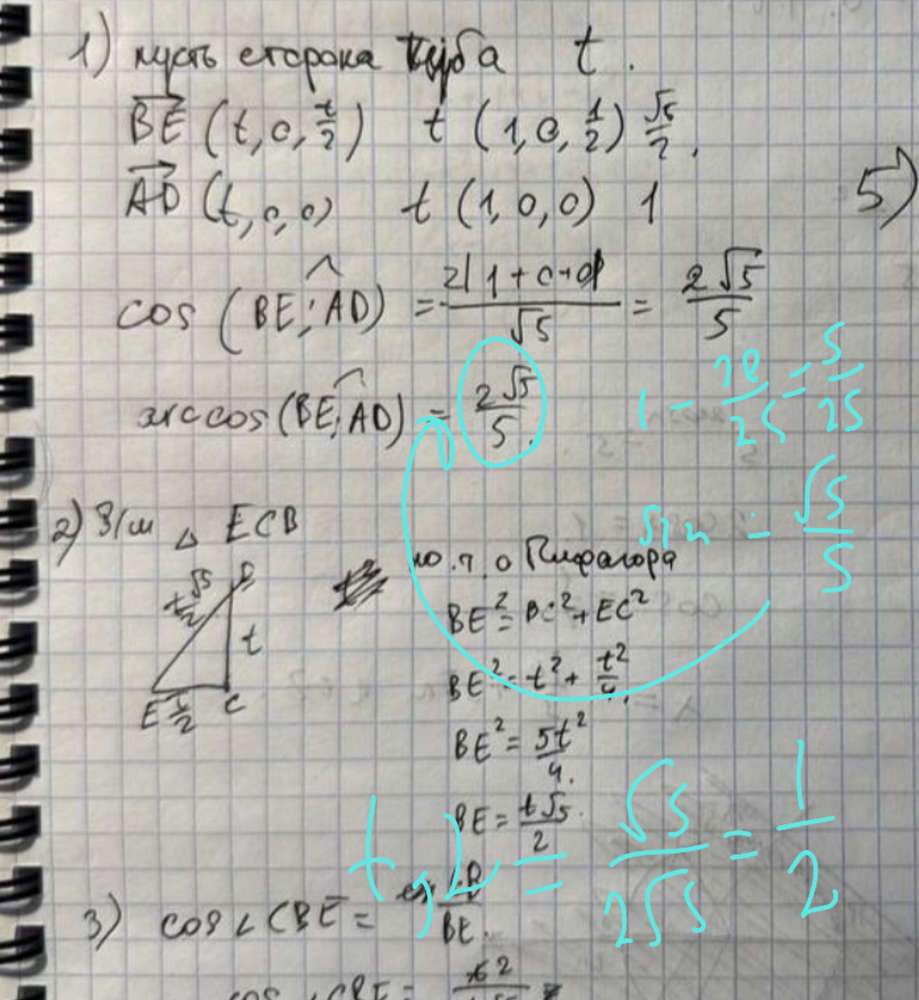 1) пусть сторона куба t.
BE (t, 0, t/2) t (1, 0, 1/2) √5/2.
AD (t, 0, 0) t (1, 0, 0) 1
5)
cos (BE; AD) = 2|1+0+0|/√5 = 2√5/5
arccos (BE; AD) = 2√5/5.
1 - 20/25 = 5/25
sin = √5/5
2) Э/ш △ ECB
t√5/2
t
E t/2 C
по т. о Пифагора
BE² = BC² + EC²
BE² = t² + t²/4.
BE² = 5t²/4.
BE = t√5/2.
tg α = √5/2√5 = 1/2
3) cos ∠ CBE = CB/BE.
cos ∠ CBE =